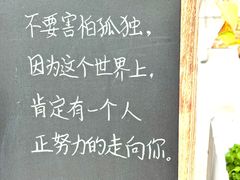 不要害怕孤独，
因为这个世界上，
肯定有一个人
正努力的走向你。